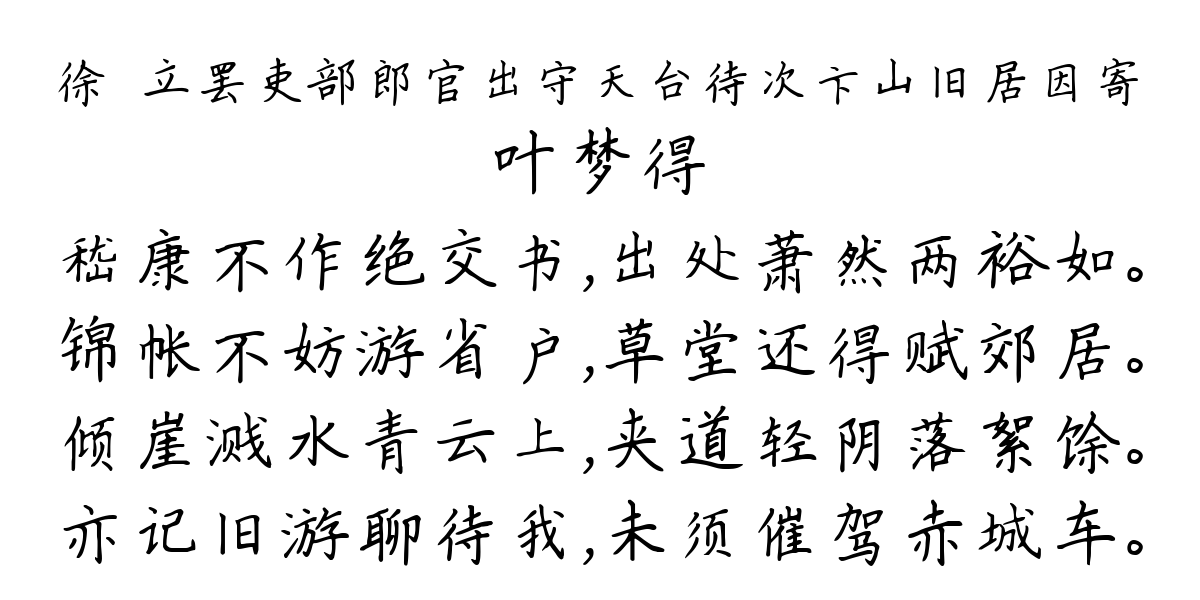 徐 立罢吏部郎官出守天台待次卞山旧居因寄
叶梦得
嵇康不作绝交书,出处萧然两裕如。
锦帐不妨游省户,草堂还得赋郊居。
倾崖溅水青云上,夹道轻阴落絮馀。
亦记旧游聊待我,未须催驾赤城车。